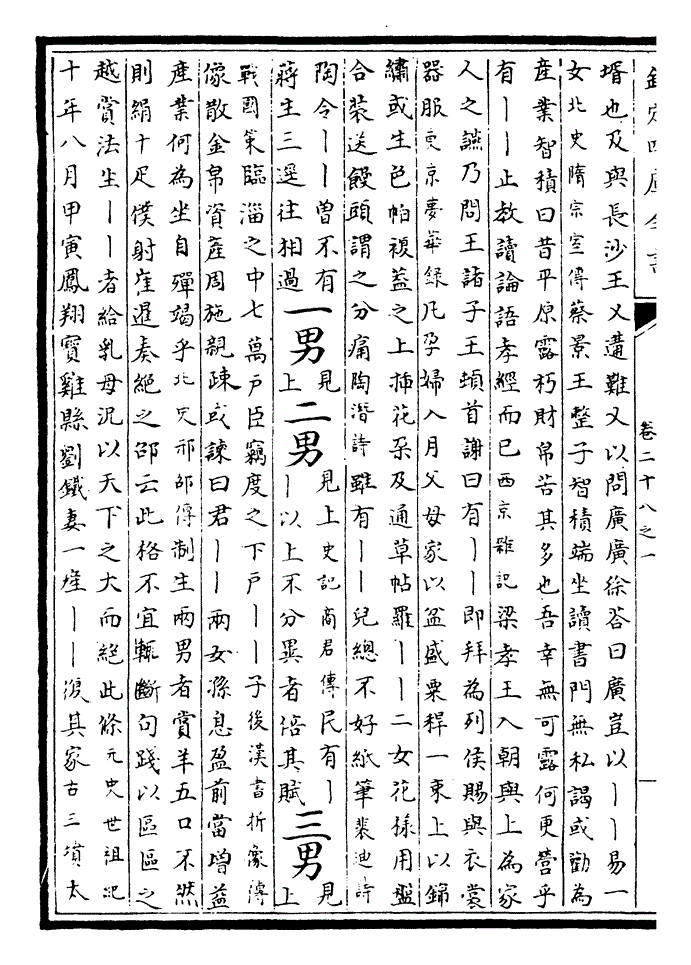 欽定四庫全書
卷二十八之一
壻也及與長沙王乂遘難乂以問廣廣徐答曰廣豈以丨丨易一
女北史隋宗室傳蔡景王整子智積端坐讀書門無私謁或勸為
產業智積曰昔平原露朽財帛苦其多也吾幸無可露何更營乎
有丨丨止教讀論語孝經而已西京雜記梁孝王入朝與上為家
人之讌乃問王諸子王頓首謝曰有丨丨即拜為列侯賜與衣裳
器服東京夢華錄凡孕婦入月父母家以盆盛粟稈一束上以錦
繡或生色帕複蓋之上揷花朶及通草帖羅丨丨二女花様用盤
合裝送饅頭謂之分痛陶潛詩雖有丨丨兒總不好紙筆裴迪詩
陶令丨丨曾不有
蔣生三逕往相過
一男
見上
二男
見上史記商君傳民有丨
丨以上不分異者倍其賦
三男
見上
戰國策臨淄之中七萬戶臣竊度之下戶丨丨子後漢書折像傳
像散金帛資產周施親疎或諫曰君丨丨兩女孫息盈前當增益
產業何為坐自殫竭乎北史邢邵傳制生兩男者賞羊五口不然
則絹十疋僕射崔暹奏絕之邵云此格不宜輒斷句踐以區區之
越賞法生丨丨者給乳母況以天下之大而絕此條元史世祖紀
十年八月甲寅鳳翔寶雞縣劉鐵妻一産丨丨復其家古三墳太